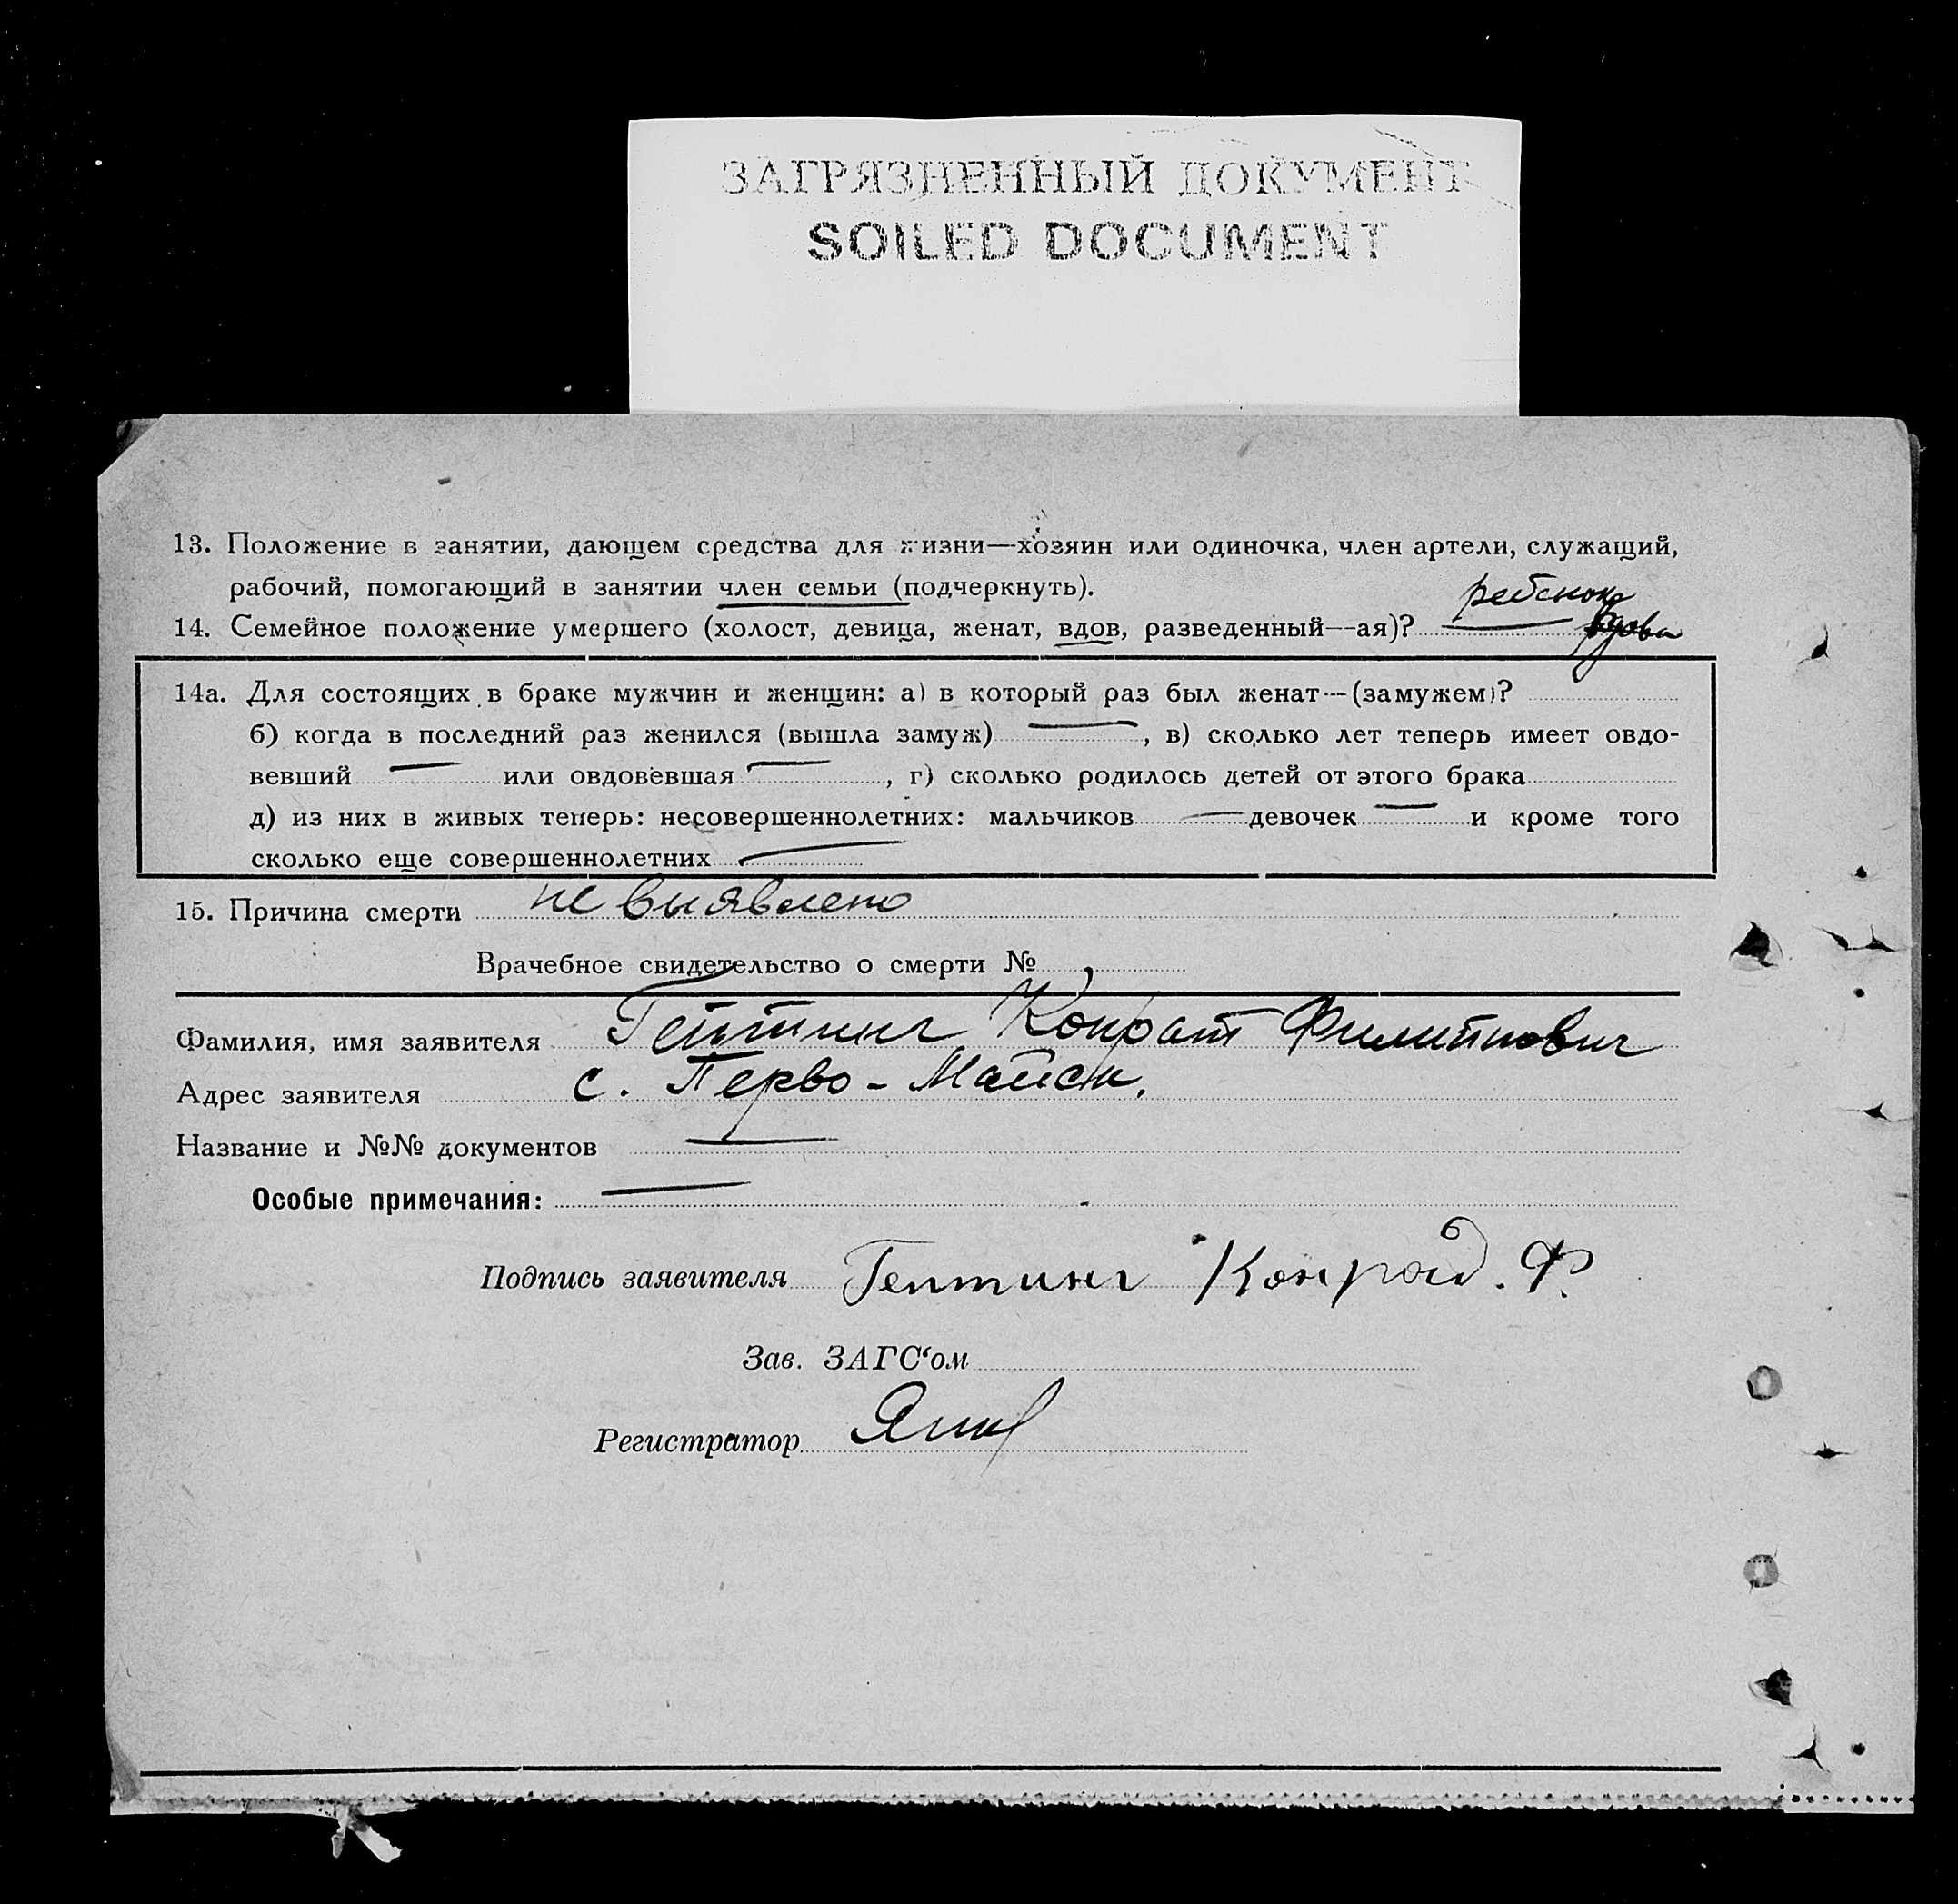 ЗАГРЯЗНЕННЫЙ ДОКУМЕНТ
SOILED DOCUMENT
13. Положение в занятии, дающем средства для жизни—хозяин или одиночка, член артели, служащий,
рабочий, помогающий в занятии член семьи (подчеркнуть).
ребенок
14. Семейное положение умершего (холост, девица, женат, вдов, разведенный—ая)? вдова
14а. Для состоящих в браке мужчин и женщин: а) в который раз был женат—(замужем)?
б) когда в последний раз женился (вышла замуж) —, в) сколько лет теперь имеет овдо-
вевший — или овдовевшая —, г) сколько родилось детей от этого брака
д) из них в живых теперь: несовершеннолетних: мальчиков — девочек — и кроме того
сколько еще совершеннолетних —
15. Причина смерти не выявлено
Врачебное свидетельство о смерти №
Фамилия, имя заявителя Гептинг Конрат Филиппович
Адрес заявителя с. Перво-Майск.
Название и №№ документов —
Особые примечания: —
Подпись заявителя Гептинг Конрад. Ф.
Зав. ЗАГС‘ом
Регистратор